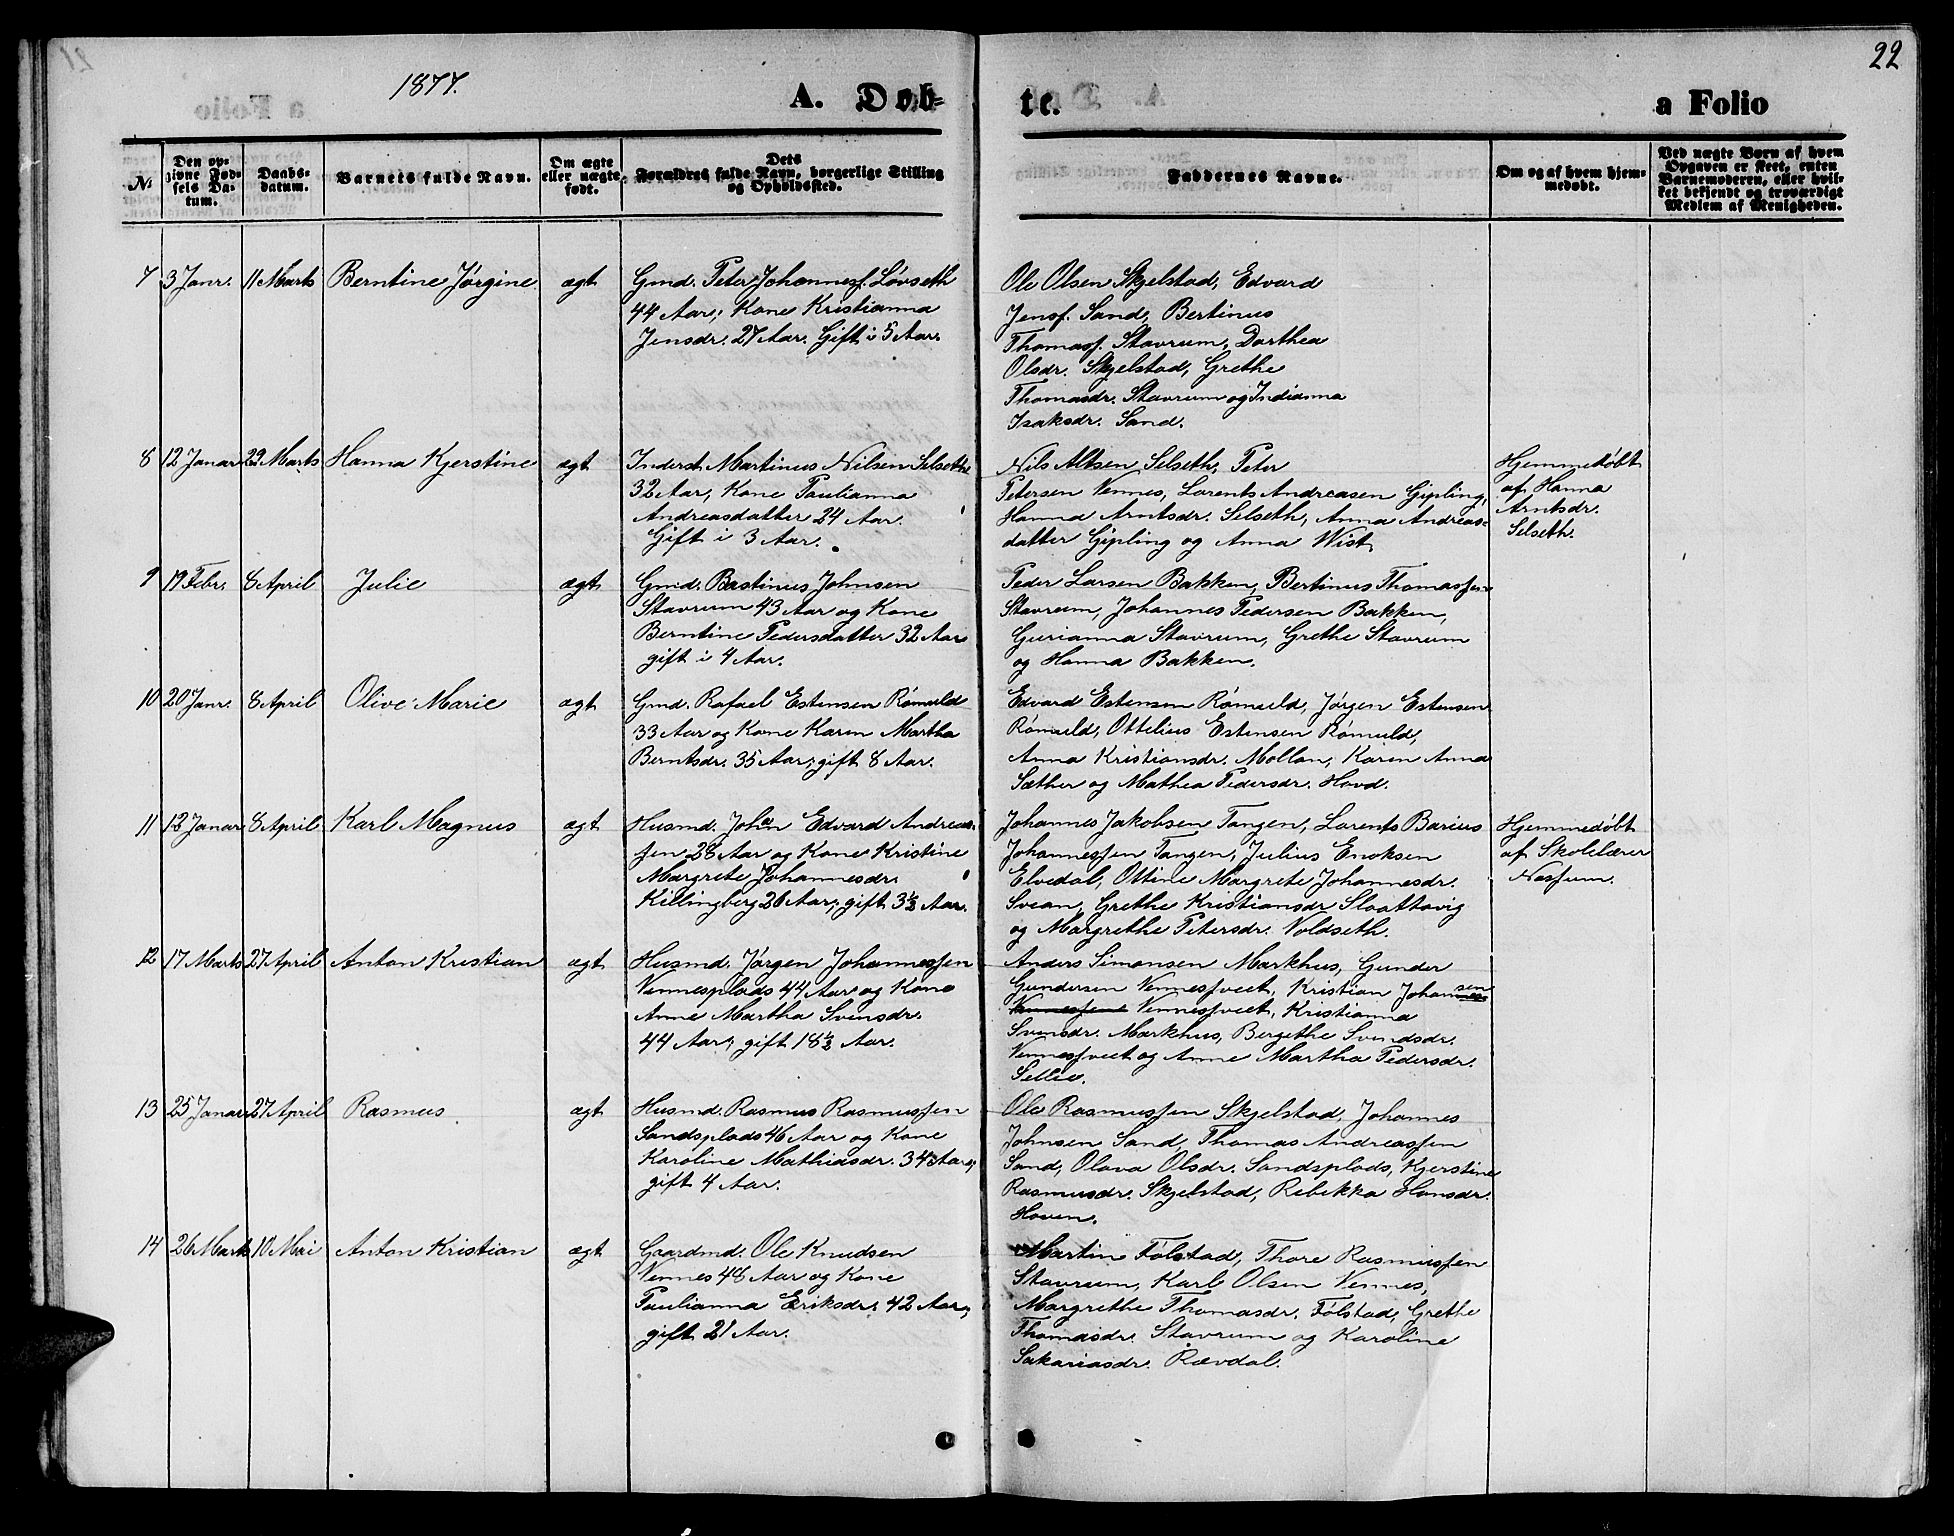 22
1877.
A. Døb-
te.
a Folio
№
Den op-
givne Fød-
sels Da-
tum.
Daabs-
datum.
Barnets fulde Navn.
Om ægte
eller uægte
født.
Dets
Forældres fulde Navn, borgerlige Stilling
og Opholdssted.
Faddernes Navne.
Om og af hvem hjem-
medøbt.
Ved uægte Børn af hvem
Opgaven er skeet, enten
Barnemoderen, eller hvil-
ket bekjendt og troværdigt
Medlem af Menigheden.
7 3 Janr. 11 Marts Berntine Jørgine ægt
Gmd. Peter Johannesf. Løvseth
44 Aar; Kone Kristianna
Jensdr. 27 Aar. Gift i 5 Aar.
Ole Olsen Skjelstad, Edvard
Jensf. Sand, Bertinus
Thomasf. Stavrum, Dorthea
Olsdr. Skjelstad, Grethe
Thomasdr. Stavrum og Indianna
Isaksdr. Sand.
8 12 Januar 29 Marts Hanna Kjerstine ægt
Inderst Martinus Nilsen Selseth
32 Aar, Kone Paulianna
Andreasdatter 24 Aar.
Gift i 3 Aar.
Nils Altsen Selseth, Peter
Petersen Vennes, Lorents Andreasen Gipling,
Hanna Arntsdr. Selseth, Anna Andreas-
datter Gipling og Anna Wist.
Hjemmedøbt
af Hanna
Arntsdr.
Selseth.
9 19 Febr. 8 April Julie ægt
Gmd. Bastinus Johnsen
Stavrum 43 Aar og Kone
Berntine Pedersdatter 32 Aar
gift i 4 Aar.
Peder Larsen Bakken, Bertinus Thomassen
Stavrum, Johannes Pedersen Bakken,
Gurianna Stavrum, Grethe Stavrum
og Hanna Bakken.
10 20 Janr. 8 April Olive Marie ægt
Gmd. Rafael Estensen Rømuld
33 Aar og Kone Karen Martha
Berntsdr. 35 Aar, gift 8 Aar.
Edvard Estensen Rømuld, Jørgen Estensen
Rømuld, Ottelius Estensen Rømuld,
Anna Kristiansdr. Mollan, Karen Anna
Sæther og Mathea Pedersdr. Hovd.
11 12 Januar 8 April Karl Magnus ægt
Husmd. Johan Edvard Andreas-
sen 28 Aar og Kone Kristine
Margrete Johannesdr.
Killingberg 26 Aar, gift 3½ Aar.
Johannes Jakobsen Tangen, Lorents Barius
Johannessen Tangen, Julius Enoksen
Elvedal, Ottine Margrete Johannesdr.
Svean, Grethe Kristiansdr Slaattavig
og Margrethe Petersdr. Voldseth.
Hjemmedøbt
af Skolelærer
Nessum.
12 17 Marts 27 April Anton Kristian ægt
Husmd. Jørgen Johannessen
Vennesplads 44 Aar og Kone
Anne Martha Svensdr.
44 Aar, gift 18½ Aar.
Anders Simonsen Markhus, Gunder
Gundersen Vennessveet, Kristian Johansen
Vennessveet, Kristianna
Svensdr. Markhus, Bergithe Svendsdr.
Vennessveet og Anne Martha Pedersdr.
Sellie.
13 25 Januar 27 April Rasmus ægt
Husmd. Rasmus Rasmussen
Sandsplads 46 Aar og Kone
Karoline Mathiasdr. 34 Aar,
gift 4 Aar.
Ole Rasmussen Skjelstad, Johannes
Johnsen Sand, Thomas Andreassen
Sand, Olava Olsdr. Sandsplads, Kjerstine
Rasmusdr. Skjelstad, Rebekka Hansdr.
Hoven.
14 26 Marts 10 Mai Anton Kristian ægt
Gaardmd. Ole Knudsen
Vennes 48 Aar og Kone
Paulianna Eriksdr. 42 Aar,
gift 21 Aar.
Martin Følstad, Thore Rasmussen
Stavrum, Karl Olsen Vennes,
Margrethe Thomasdr. Følstad, Grethe
Thomasdr. Stavrum og Karoline
Sakariasdr. Rævdal.